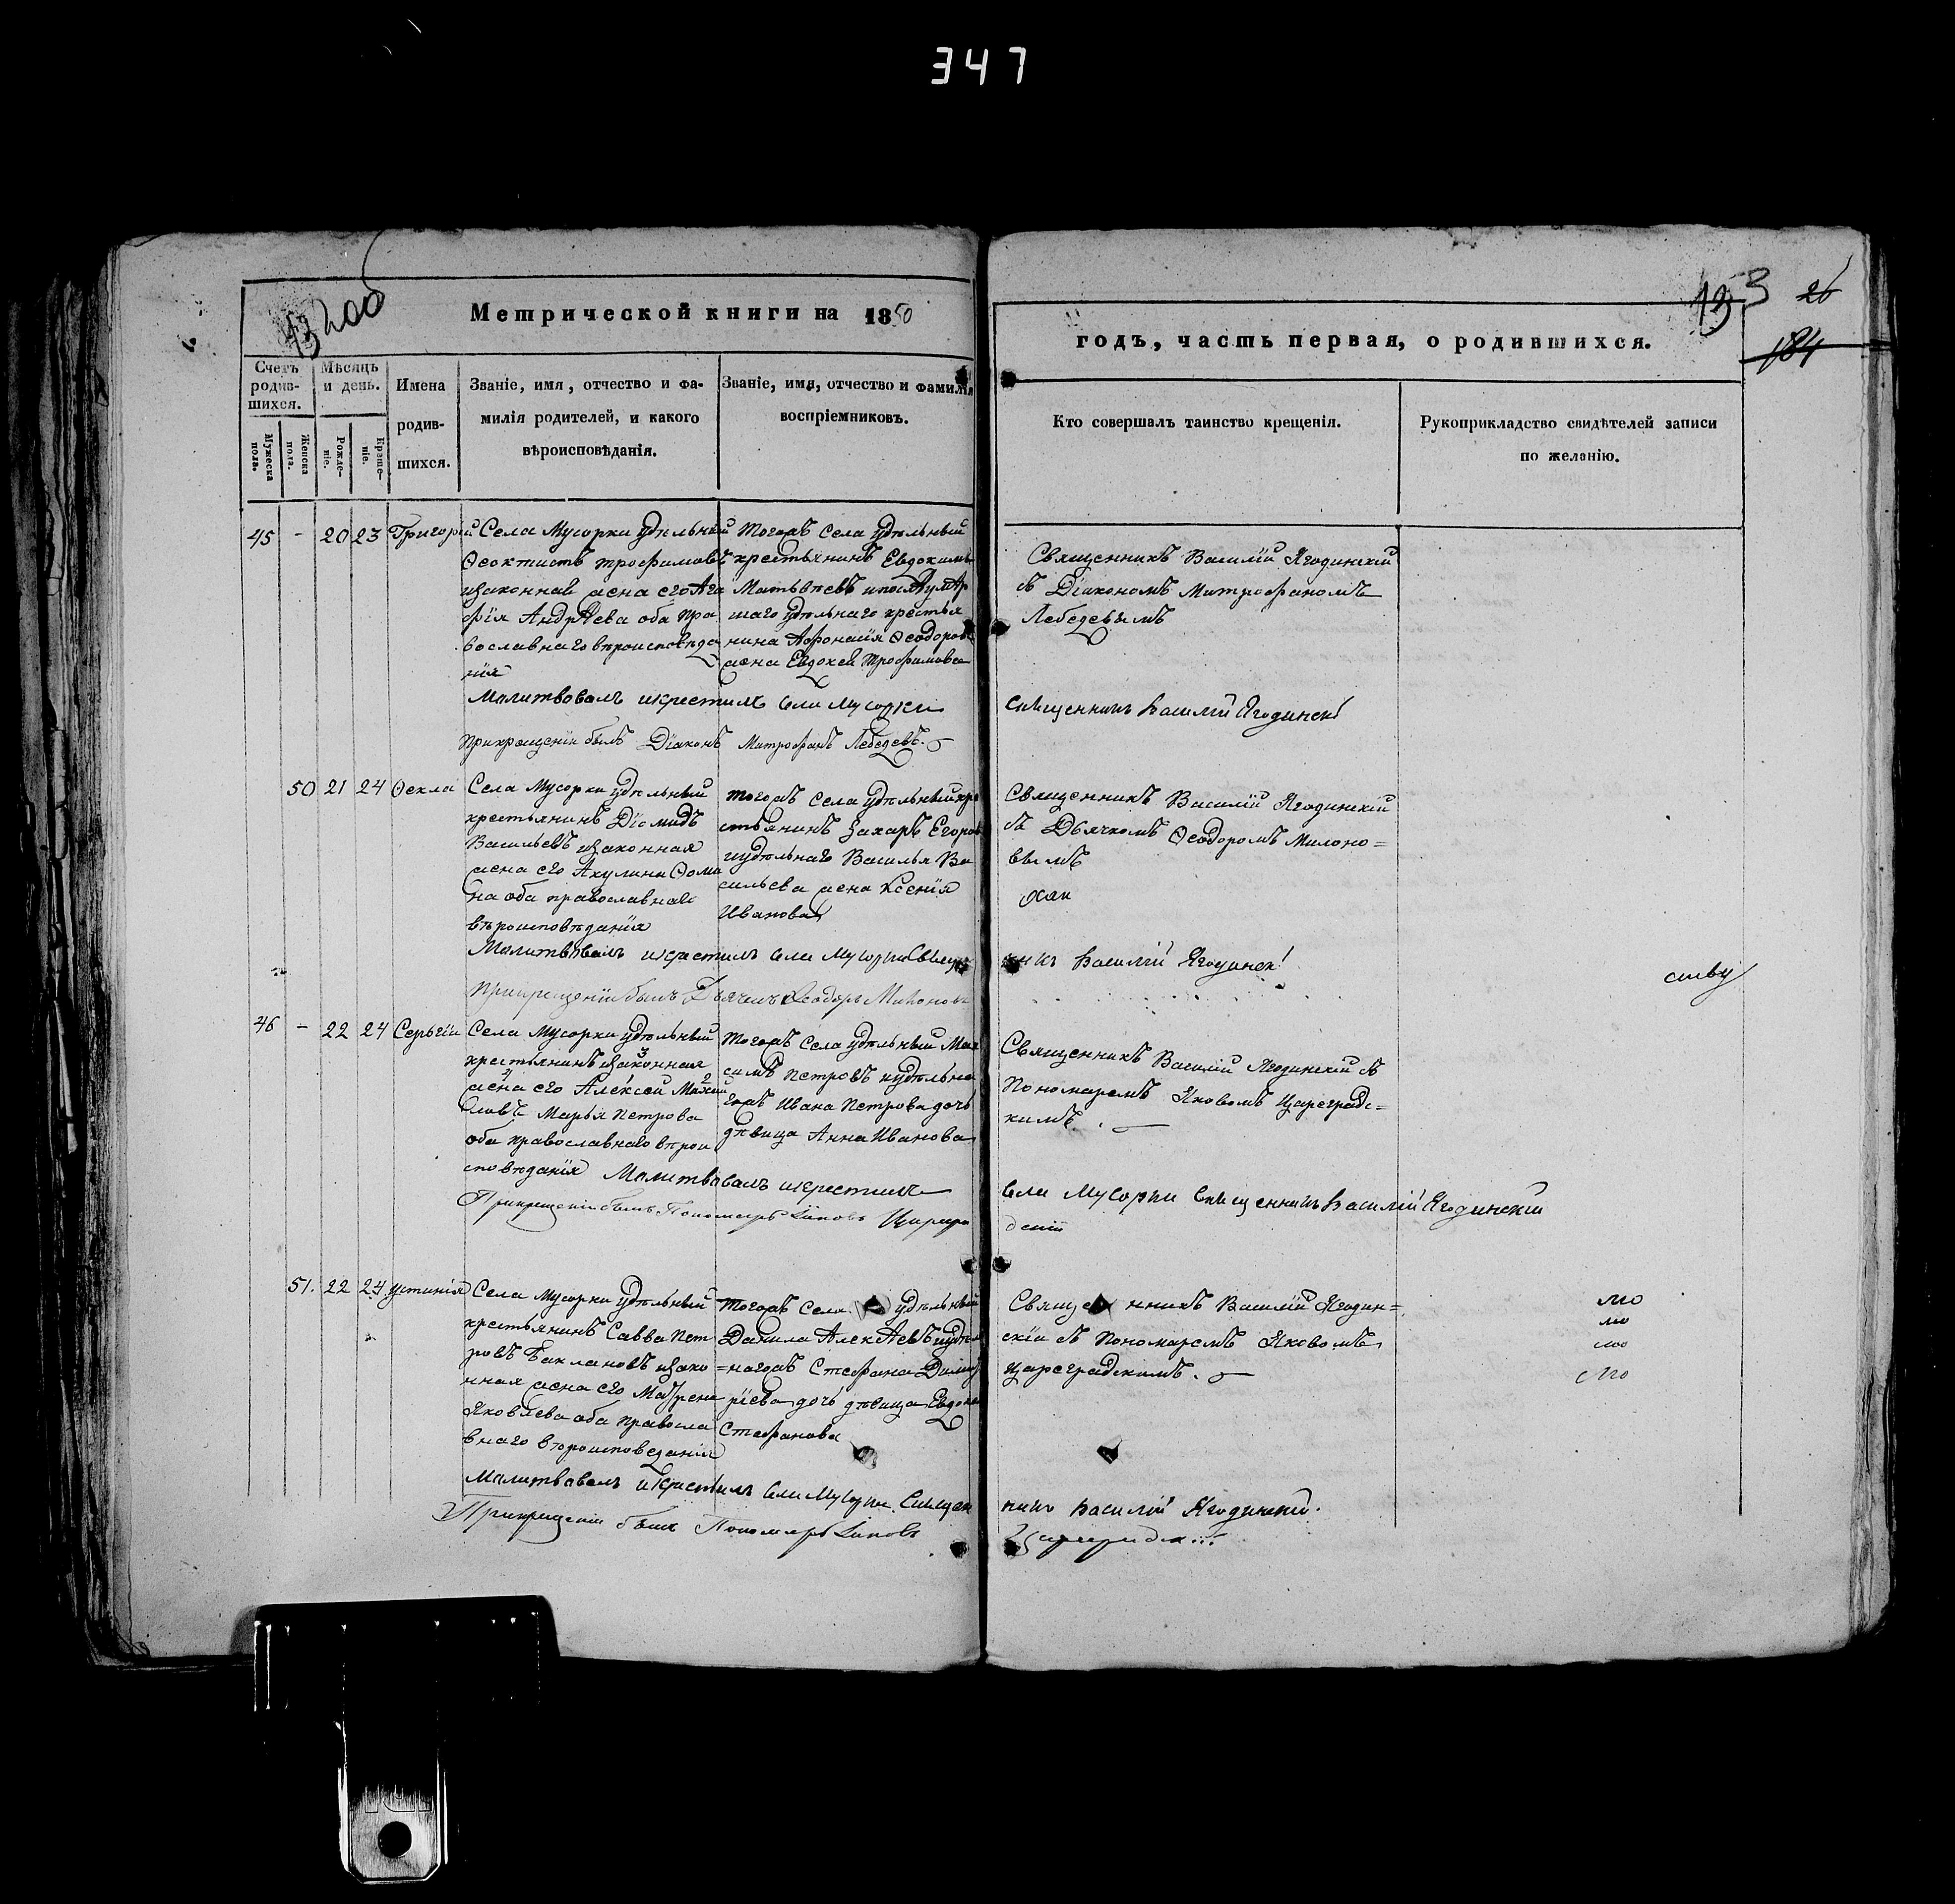 347
Метрической книги на 1850
годъ, часть первая, о родившихся.
133
26
184
Счетъ родив-шихся.
Мѣсяцъ и день.
Имена родив-шихся.
Званіе, имя, отчество и фа-
милія родителей, и какого
вѣроисповѣданія.
Званіе, имя, отчество и фамилія
воспріемниковъ.
Кто совершалъ таинство крещенія.
Рукоприкладство свидѣтелей записи
по желанію.
Мужеска пола.
Женска пола.
Рожде-ніе.
Креще-ніе.
45 - 20 23 Григорій
Села Мусорки удѣльный
Ѳеоктистъ Трофимовъ
изаконная жена его Ага
фія Андрѣева оба пра
вославнаго вѣроисповѣда
нія
Тогожъ Села удѣльный
крестьянинъ Евдокимъ
Матьвѣевъ ипослѣ умѣр
шаго удѣльнаго крестья
нина Афонасія Ѳеодорова
жена Евдокея Трофимова
Священникъ Василій Ягодинскій
съ Діакономъ Митрофаномъ
Лебедевымъ
Малитвовалъ икрестилъ Села Мусорки
Священникъ Василій Ягодинскі
Прикрещеніи былъ Діаконъ Митрофанъ Лебедевъ.
50 21 24 Ѳекла
Села Мусорки удѣльный
крестьянинъ Діомидъ
Васильевъ изаконная
жена его Акулина Ѳоми
на оба православнаго
вѣроисповѣданія
Тогожъ Села удѣльный кре
стьянинъ Захаръ Егоровъ
иудѣльнаго Василья Ва
сильева жена Ксенія
Иванова
Священникъ Василій Ягодинскій
съ Дьячкомъ Ѳеодоромъ Милоно=
вымъ
Малитвовалъ икрестилъ Села Мусорки Священ
никъ Василій Ягодинскі
Прикрещеніи былъ Дьячекъ Ѳеодоръ Милоновъ
46 - 22 24 Серьгій
Села Мусорки удѣльный
крестьянинъ изаконная
жена его Алексей Михай
ловъ Марья Петрова
оба православнаго вѣрои
сповѣданія
Тогожъ Села удѣльный Мак
симъ Петровъ иудѣльна
гожъ Ивана Петрова дочь
дѣвица Анна Иванова
Священникъ Василій Ягодинскій съ
Пономаремъ Яковомъ Цареградс=
кимъ.
Малитвовалъ икрестилъ
Села Мусорки Священникъ Василій Ягодинскій
Прикрещеніи былъ Пономарь Іаковъ Царегра
дскій
51. 22 24 Устинія
Села Мусорки удѣльный
крестьянинъ Савва Пет
ровъ Баклановъ изако
нная жена его Матрена
Яковлева оба правосла
внаго вѣроисповеданія
Тогожъ Села удѣльный
Данила Алексѣевъ иудѣль
=нагожъ Стефана Димит
ріева дочь дѣвица Евдокея
Стефанова
Священникъ Василій Ягодин=
скій съ Пономаремъ Яковомъ
Цареградскимъ.
Малитвовалъ икрестилъ Села Мусорки Священ
никъ Василій Ягодинскій.
Прикрещеніи былъ Пономарь Іаковъ
Цареградск